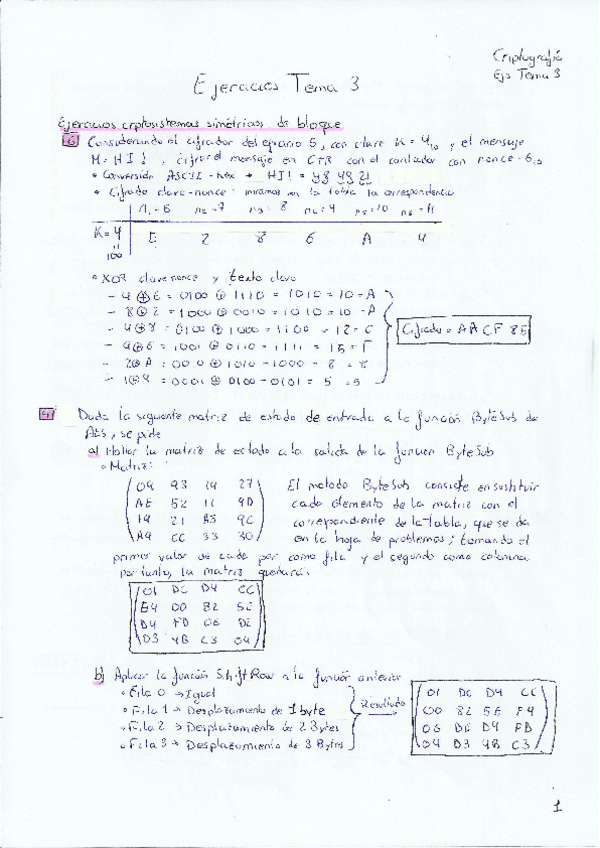 Criptografía
Ejs Tema 3
Ejercicios Tema 3
Ejercicios criptosistemas simétricos de bloque
6) Considerando el cifrador del ejercicio 5, con clave K = 4₁₀ y el mensaje
M = HI!, cifrar el mensaje en CTR con el contador con nonce = 6₁₀
• Conversión ASCII - hex → HI! = 48 49 21
• Cifrado clave-nonce: miramos en la tabla la correspondencia
n₁=6 n₂=7 n₃=8 n₄=9 n₅=10 n₆=11
K=4 E 2 8 6 A 4
100
• XOR clave nonce y texto claro
- 4 ⊕ E = 0100 ⊕ 1110 = 1010 = 10 = A
- 8 ⊕ 2 = 1000 ⊕ 0010 = 1010 = 10 = A
- 4 ⊕ 8 = 0100 ⊕ 1000 = 1100 = 12 = C
- 9 ⊕ 6 = 1001 ⊕ 0110 = 1111 = 15 = F
- 2 ⊕ A = 0010 ⊕ 1010 = 1000 = 8 = 8
- 1 ⊕ 4 = 0001 ⊕ 0100 = 0101 = 5 = 5
Cifrado = AA CF 85
Dada la siguiente matriz de estado de entrada a la función ByteSub de
AES, se pide
a) Hallar la matriz de estado a la salida de la función ByteSub
• Matriz:
09 93 19 27
AE 52 11 9D
19 21 A3 9C
A9 CC 33 30
El método ByteSub consiste en sustituir
cada elemento de la matriz con el
correspondiente de la tabla, que se da
en la hoja de problemas; tomando el
primer valor de cada par como fila y el segundo como columna
por tanto, la matriz quedará:
01 DC D4 CC
E4 00 82 5E
D4 FD 06 DE
D3 4B C3 04
b) Aplicar la función ShiftRow a la función anterior
• Fila 0 → Igual
• Fila 1 → Desplazamiento de 1 byte
• Fila 2 → Desplazamiento de 2 Bytes
• Fila 3 → Desplazamiento de 3 Bytes
Resultado
01 DC D4 CC
00 82 5E E4
06 DE D4 FD
04 D3 4B C3
1